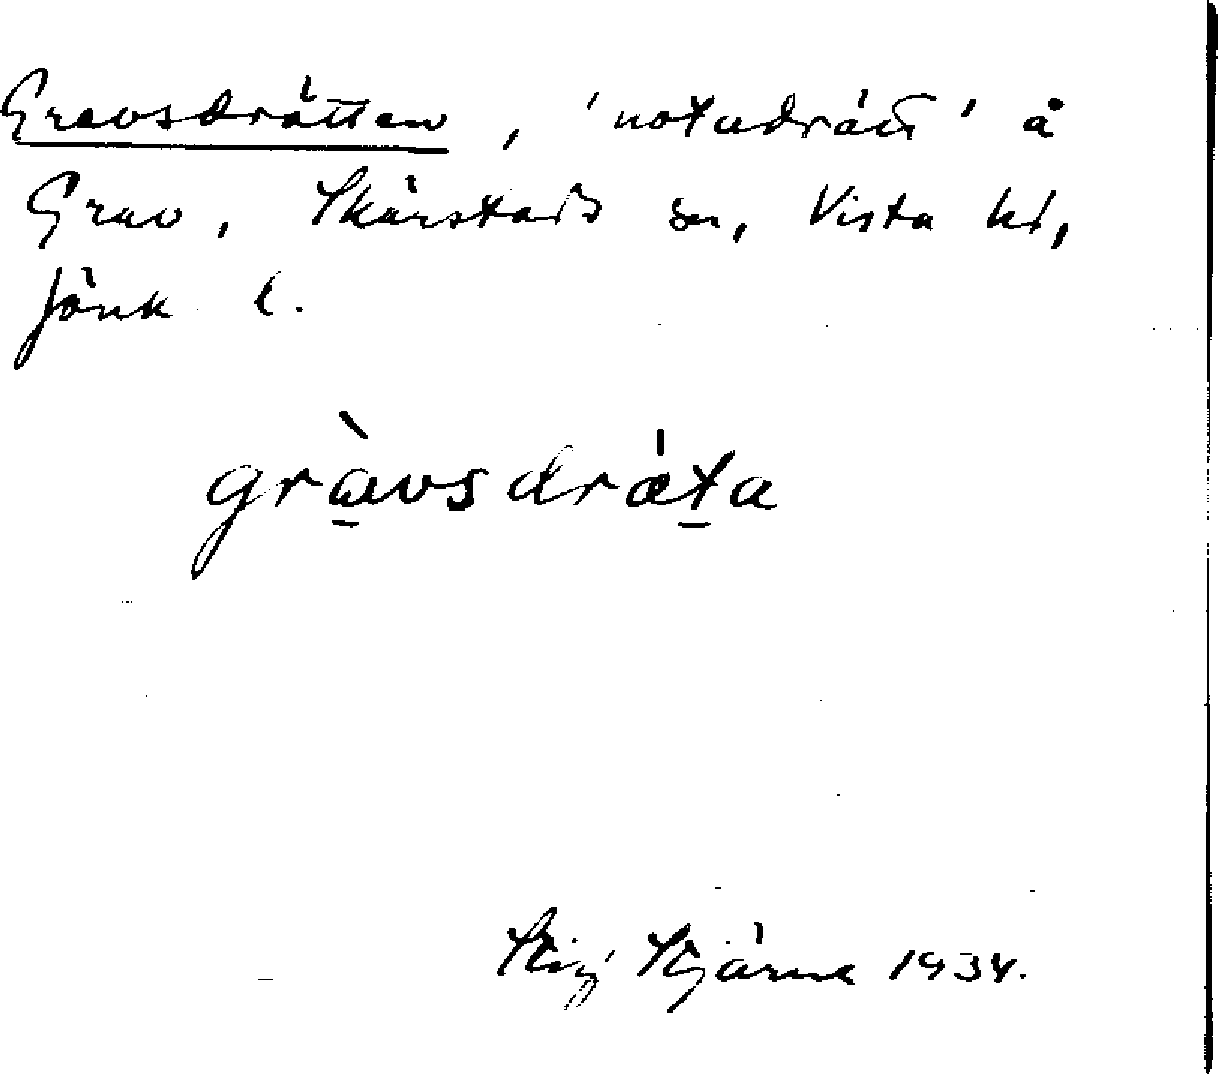 Gravsdrätten, 'notadrätt' å
Grav, Skärstads sn, Vista hd,
Jönk l.
gràvsdrǽta
Stig Stjärne 1934.